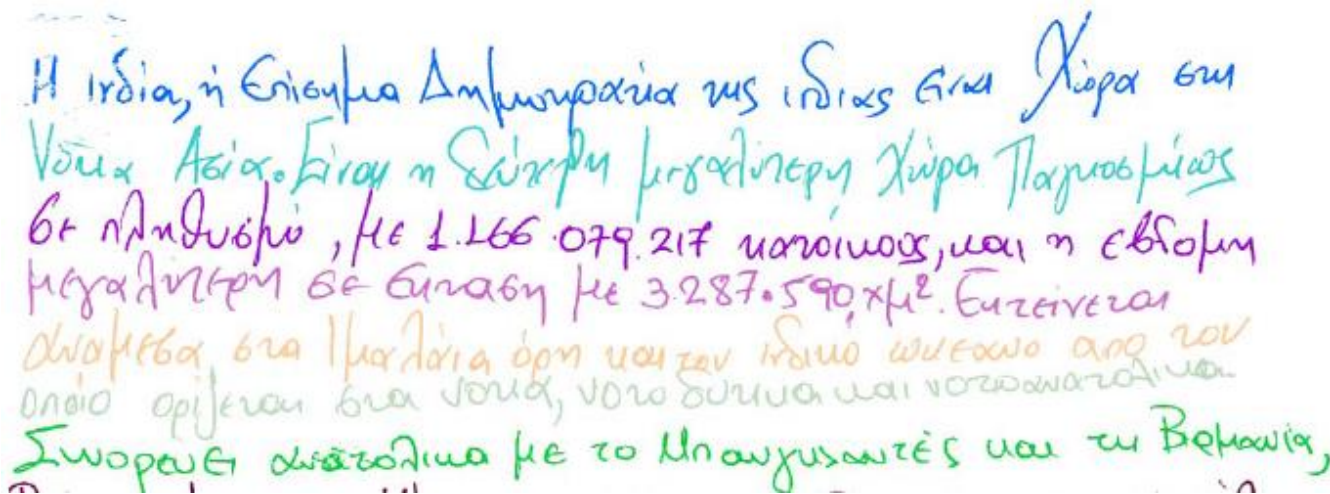 Η ινδία, ή Επίσημα Δημοκρατία της ινδιας Είναι Χώρα στη
Νότια Ασία. Είναι η δεύτερη μεγαλύτερη Χώρα Παγκοσμίως
σε πληθυσμό, με 1.166.079.217 κατοίκους, και η εβδομη
μεγαλύτερη σε έκταση με 3.287.590, χμ². Εκτείνεται
ανάμεσα στα Ιμαλάια όρη και τον ινδικό ωκεανό απο τον
οποίο ορίζεται στα νοτια, νοτιοδυτικα και νοτιοανατολικα
Συνορευει ανατολικα με το Μπανγκλαντές και τη Βιρμανία,